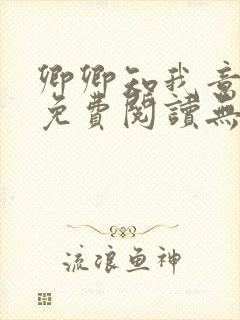 卿卿知我意
免費閱讀無
流浪鱼神